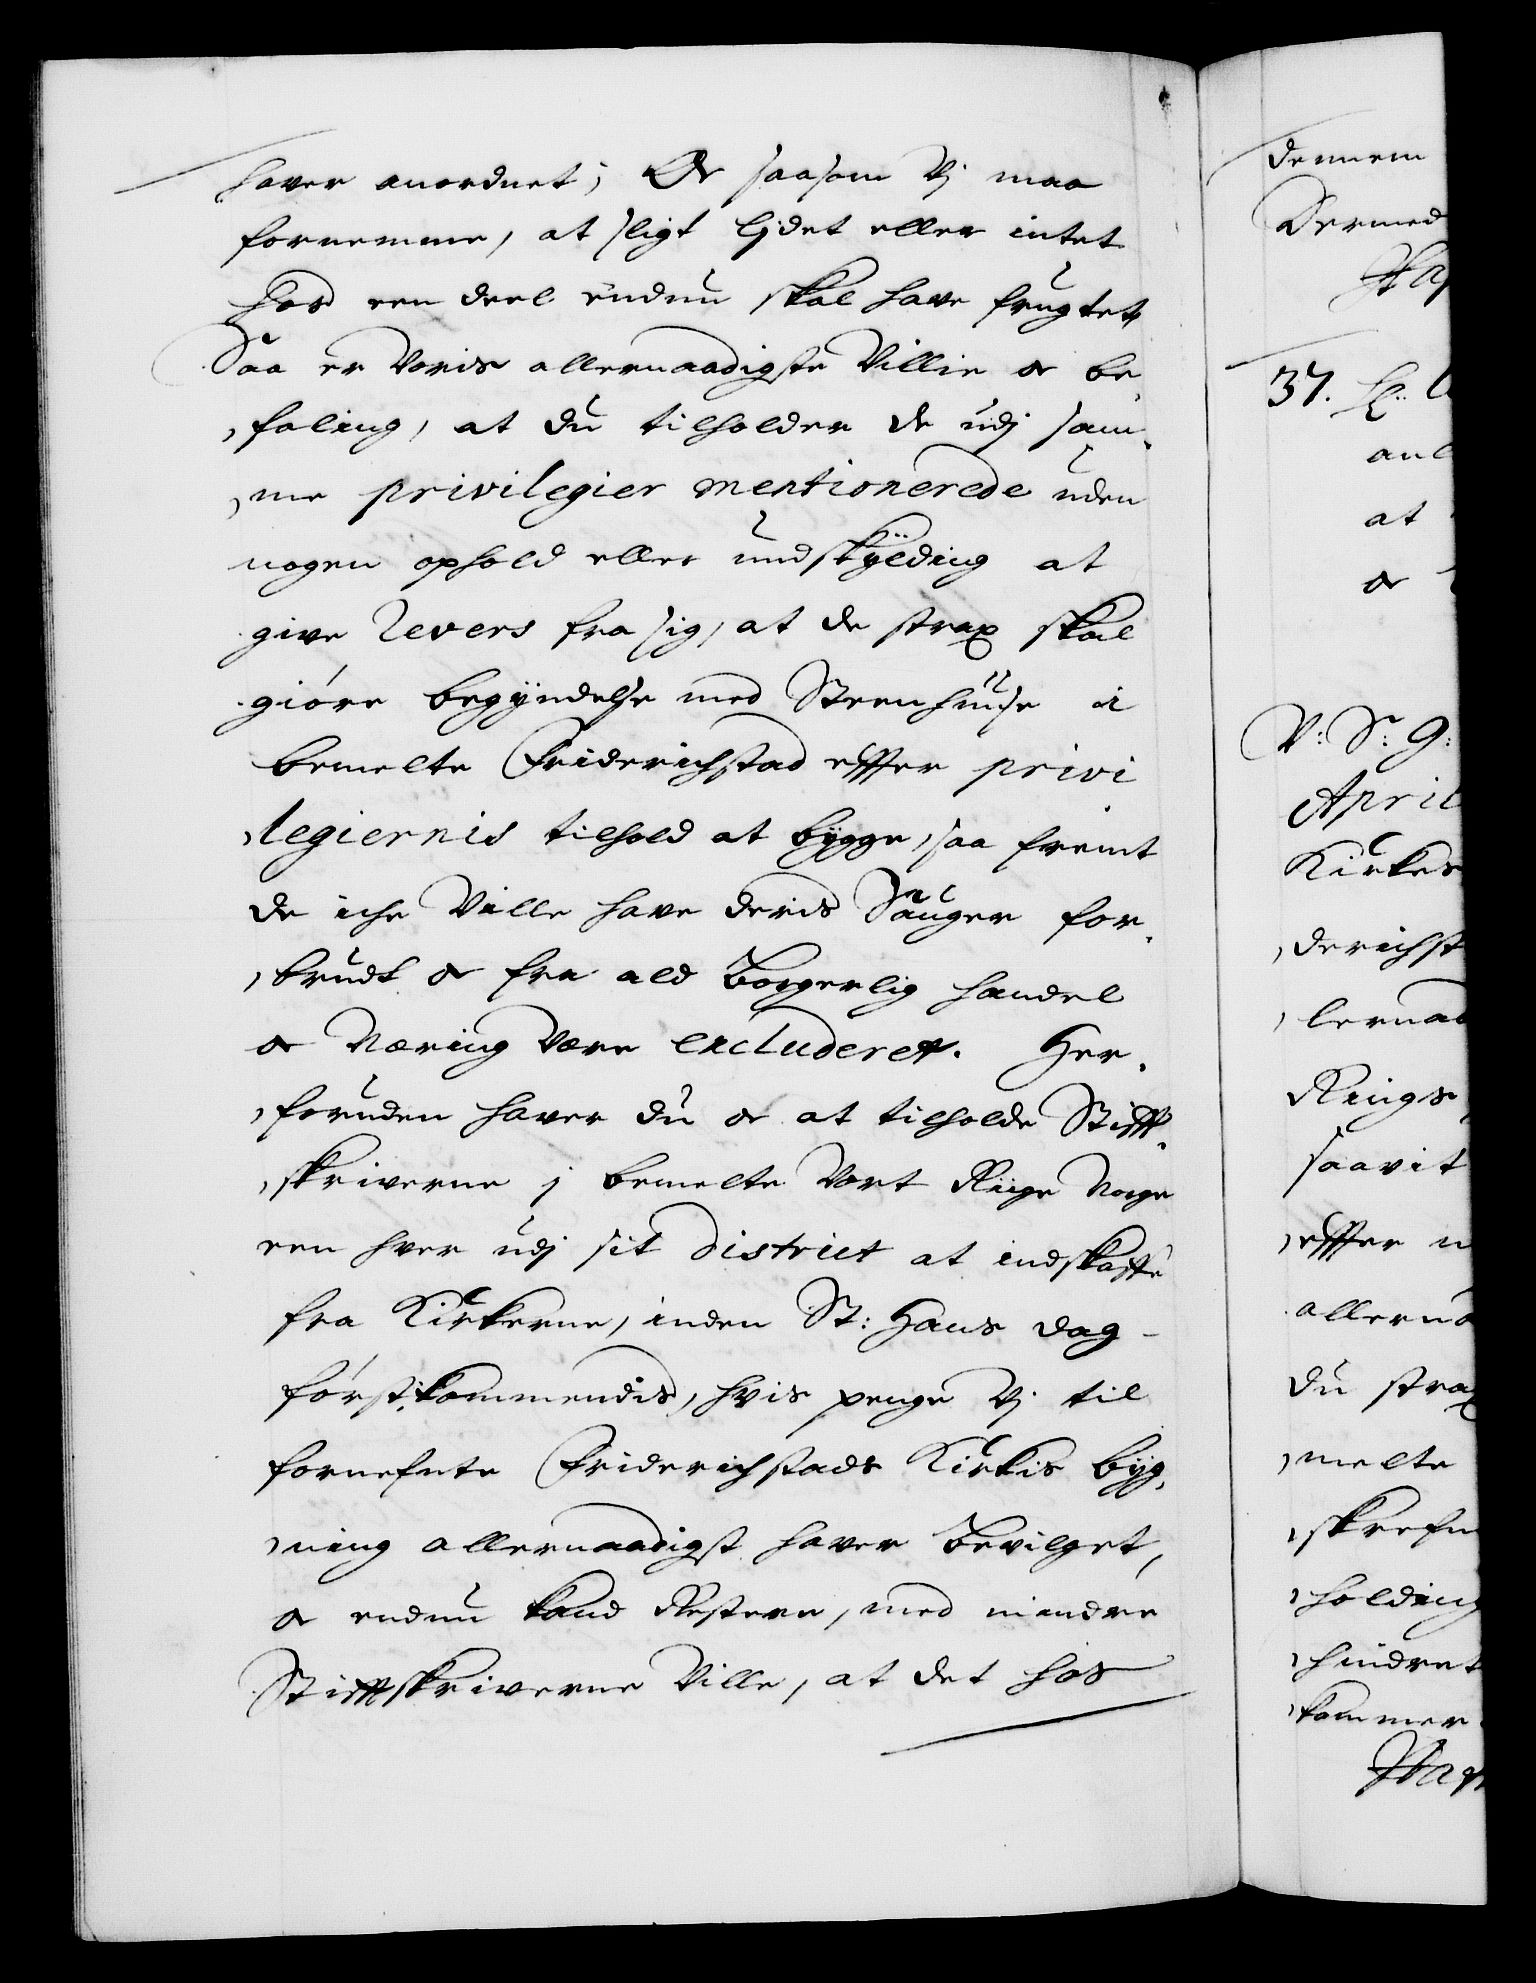 hafver anordnet; Och saasom Vj maa
fornemme, at sligt lidet eller intet
hos een deel endnu skal have frugtet,
Saa er Voris allernaadigste Villie oc be,
,faling, at du tilholder de udj sam,
,me privilegier mentionerede uden
nogen ophold eller undskÿlding at
give Revers fra sig, at de strax skal
giøre begÿndelse med Steenhuuse i
bemelte Friderichstad effter privi
,legiernis tilhold at bÿgge, saa fremt
de iche Ville have deris Sauger for,
,brudt oc fra ald Borgerlig handel
oc Næring være excluderet. Her,
,foruden haver du oc at tilholde Stifft,
,skriverne j bemelte Vort Riige Norge
een hver udj sit district at indskaffe
fra Kirkerne, inden St: Hans dag
førstkommendis, hvis penge Vj til
fornefnte Friderichstads Kirkis bÿg,
,ning allernaadigst haver Bevilget,
oc endnu kand Restere, med mindre
Stifftskriverne Ville, at det hos
dennem
Dermed
37.
at
oc
V: S: G:
April
Kirkes
,derichst
,lernaad
Rings
saavit
,effter
allerna
du strax
,melte
,skrefn
,holding
,hindret
,kommer